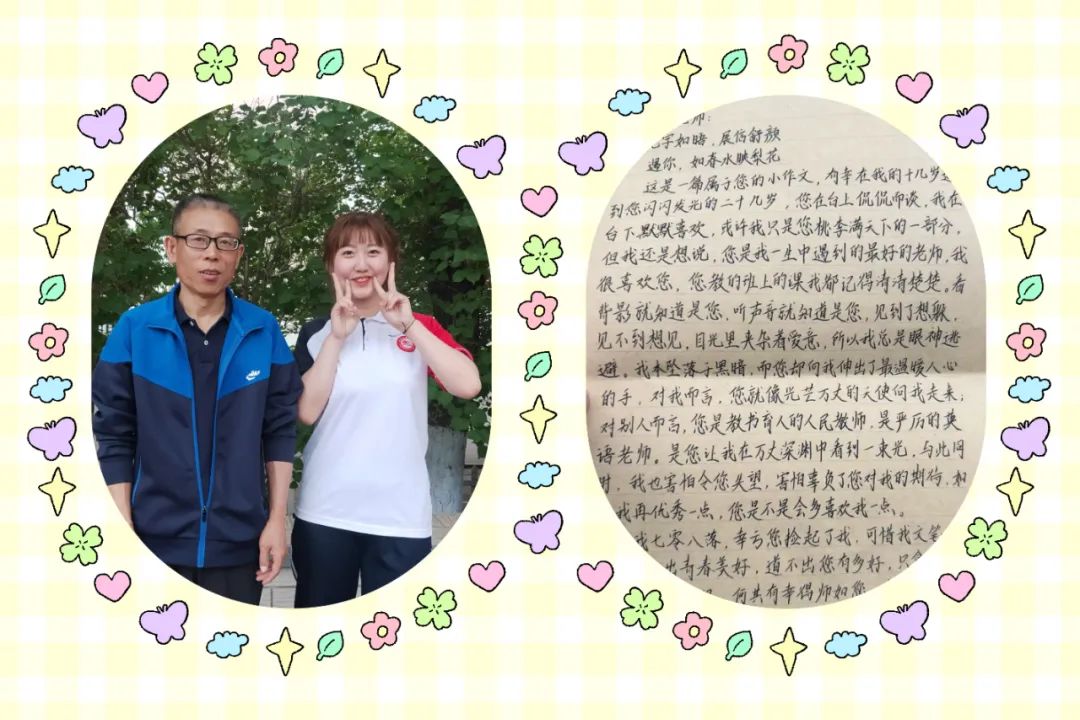 师：
字如晤，展信舒颜
遇你，如春水映梨花
这是一篇属于您的小作文，有幸在我的十几岁
到您闪闪发光的二十几岁，您在台上侃侃而谈，我在
台下默默喜欢，或许我只是您桃李满天下的一部分。
但我还是想说，您是我一生中遇到的最好的老师，我
很喜欢您，您教的班上的课我都记得清清楚楚。看
背影就知道是您，听声音就知道是您，见到了想躲，
见不到想见，目光里夹杂着爱意，所以我总是眼神逃
避。我本坠落于黑暗，而您却向我伸出了最温暖人心
的手，对我而言，您就像光芒万丈的天使向我走来；
对别人而言，您是教书育人的人民教师，是严厉的英
语老师。是您让我在万丈深渊中看到一束光，与此同
时，我也害怕令您失望，害怕辜负了您对我的期待，
我再优秀一点，您是不是会多喜欢我一点。
我七零八落，幸亏您捡起了我，可惜我文笔
出青春美好，道不出您有多好，只
何其有幸得师如您